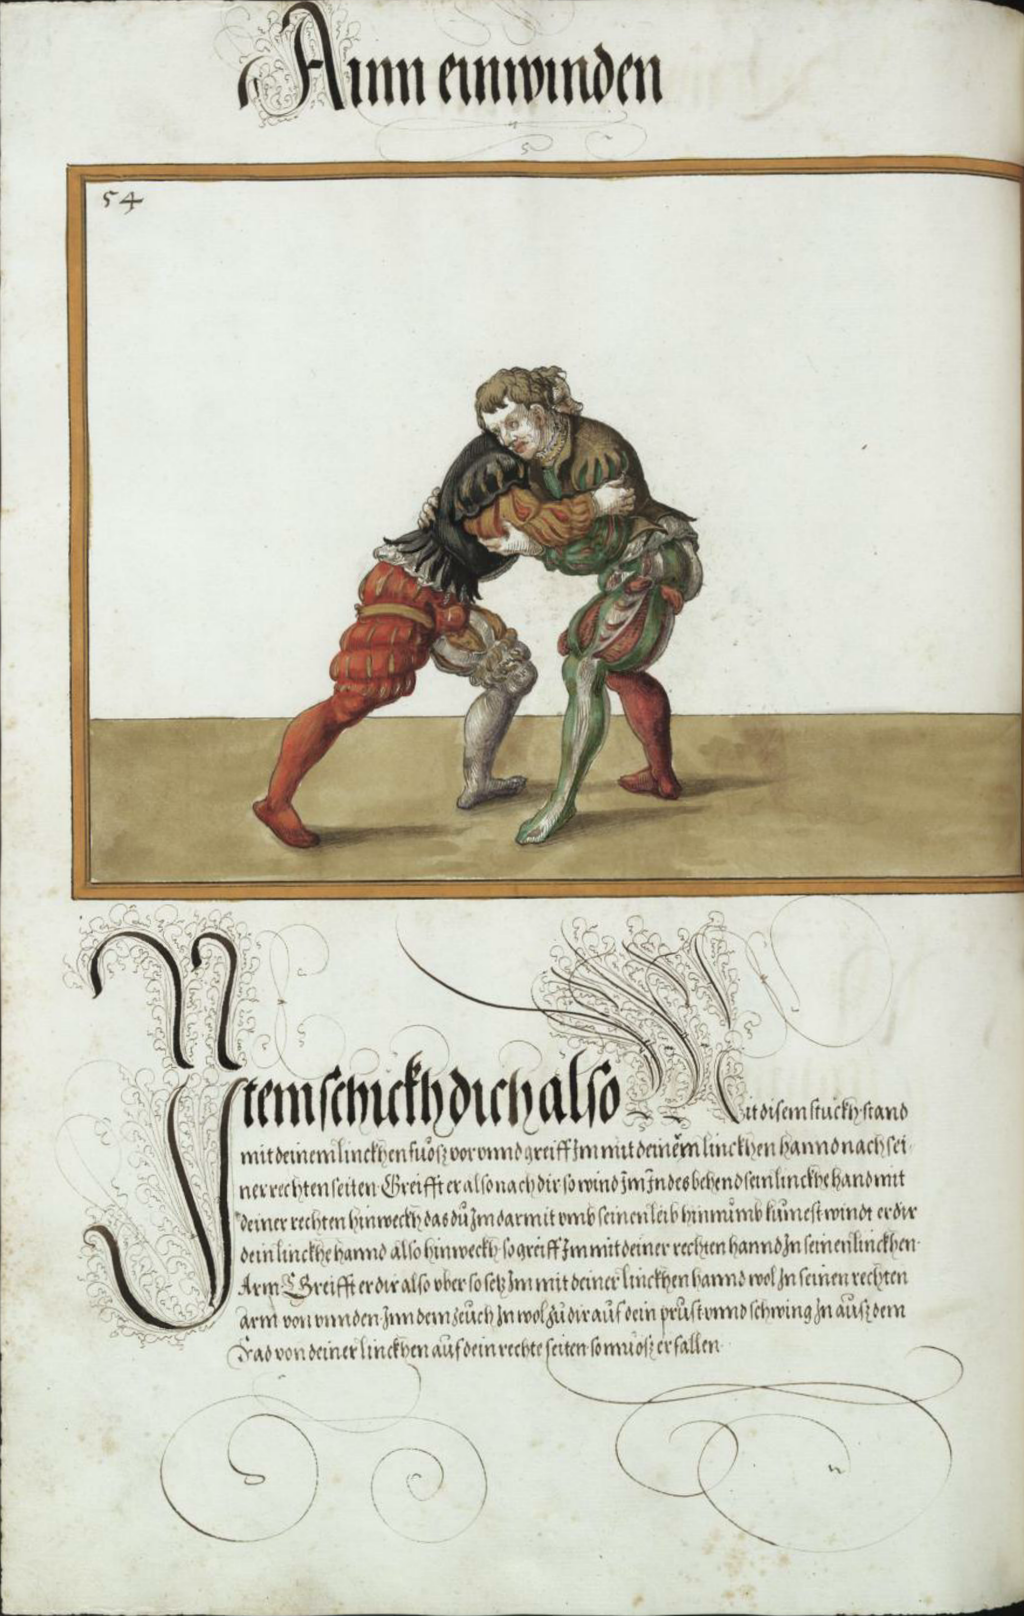 Ainn einwinden
54
Item schickh dich also Mit disem stuckh stand
mit deinem linckhen fuosz vor vnnd greiff Jm mit deinem linckhen hannd nach sei-
ner rechten seiten Greifft er also nach dir so wind Jm Jndes behend sein linckhe hand mit
deiner rechten hinweckh das dü Jm darmit vmb seinen leib hinnümb kümest windt er dir
dein linckhe hannd also hinweckh so greiff Jm mit deiner rechten hannd Jn seinen linckhen
Arm Greifft er dir also vber so setz Jm mit deiner linckhen hannd wol Jn seinen rechten
arm von vnnden Jnn dem zeuch Jn wol zü dir auf dein prüst vnnd schwing Jn aüsz dem
Fad von deiner linckhen aüf dein rechte seiten so muosz er fallen